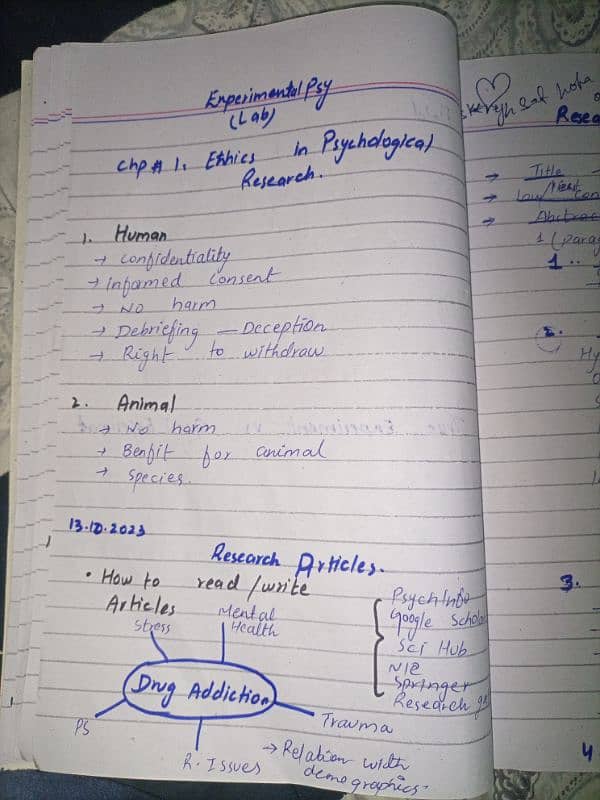 Experimental Psy
(Lab)
Chp # 1. Ethics in Psychological
Research.
1. Human
→ Confidentiality
→ Informed consent
→ No harm
→ Debriefing — Deception
→ Right to withdraw
2. Animal
→ No harm
→ Benfit for animal
→ Species.
13.10.2023
Research Articles.
• How to read / write
Articles
Stress
Mental
Health
Drug Addiction
PS
R. Issues
Trauma
→ Relation with
demographics.
PsychInfo
Google Schola
Sci Hub
Springer
Research g
Resea
→ Title
→ Abstrac
1 (parag
1..
2.
Hy
3.
4